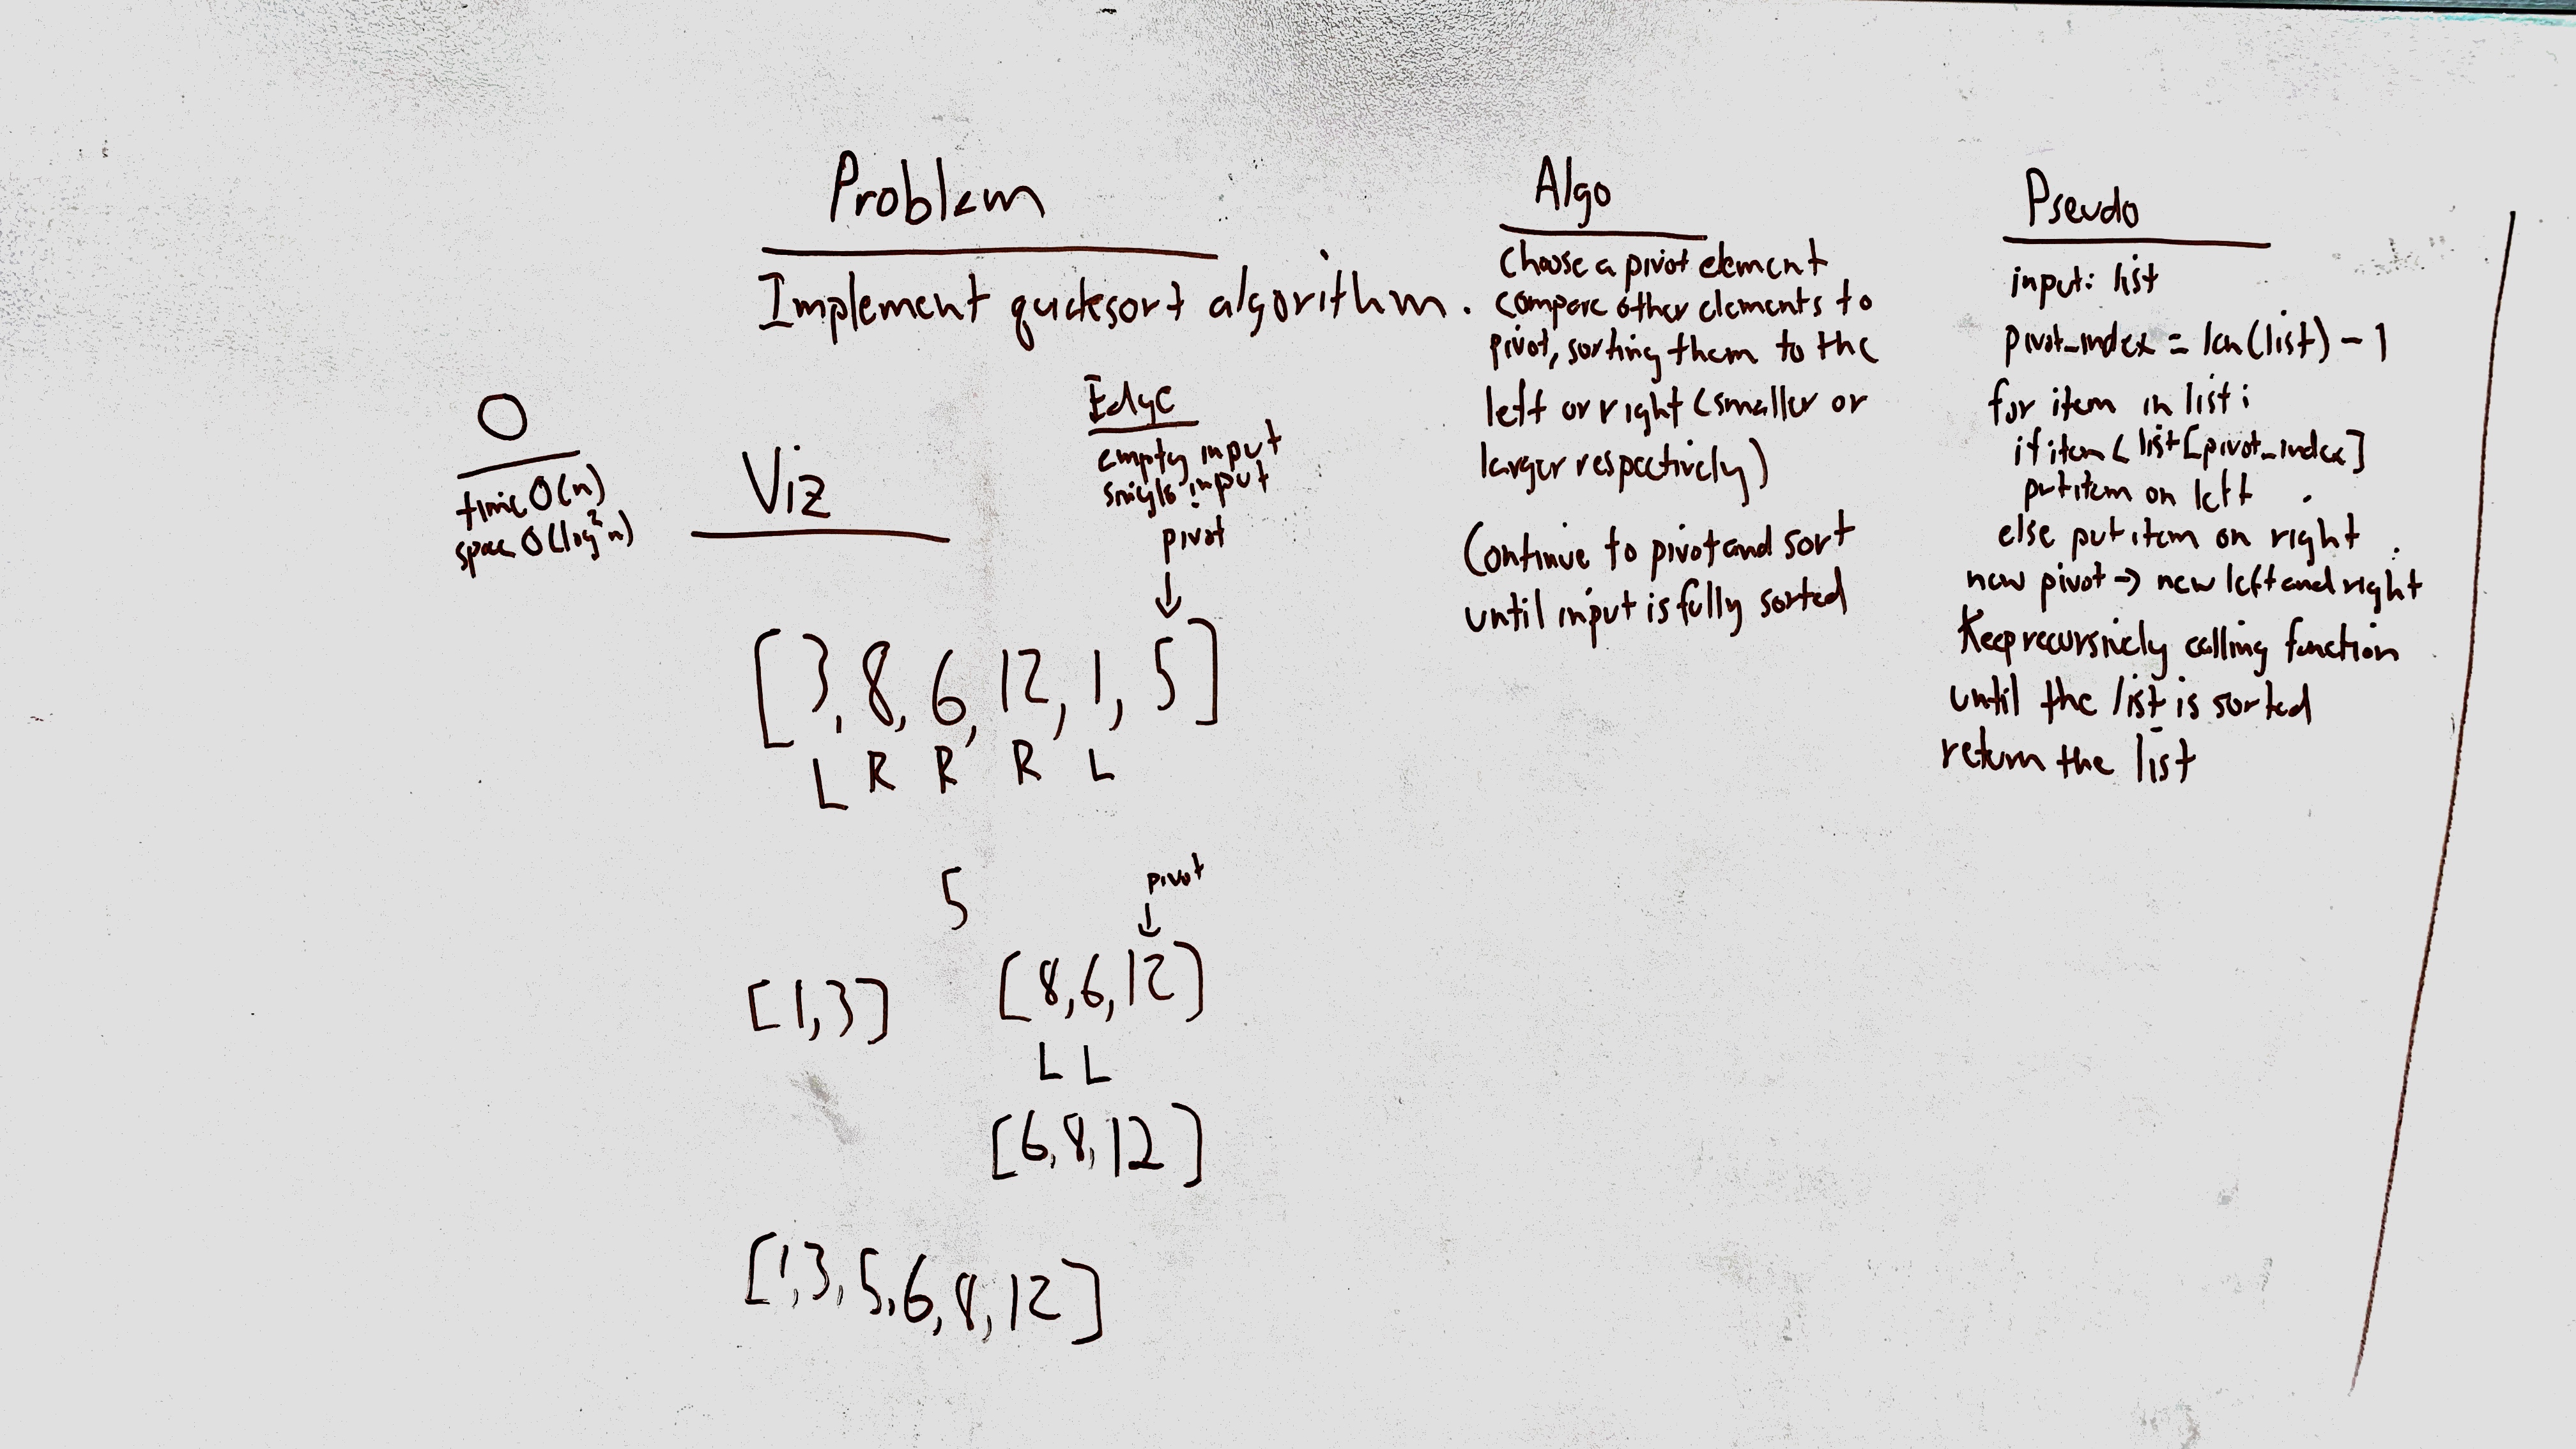 Problem
Implement quicksort algorithm.
O
time O(n)
space O(log²n)
Edge
empty input
single input
Viz
pivot
↓
[3, 8, 6, 12, 1, 5]
L R R R L
5
pivot
↓
[1,3]
[8,6,12]
L L
[6,8,12]
[1,3,5,6,8,12]
Algo
Choose a pivot element
compare other elements to
pivot, sorting them to the
left or right (smaller or
larger respectively)
Continue to pivot and sort
until input is fully sorted
Pseudo
input: list
pivot_index = len(list) - 1
for item in list:
if item < list[pivot_index]
put item on left
else put item on right
new pivot -> new left and right
Keep recursively calling function
until the list is sorted
return the list